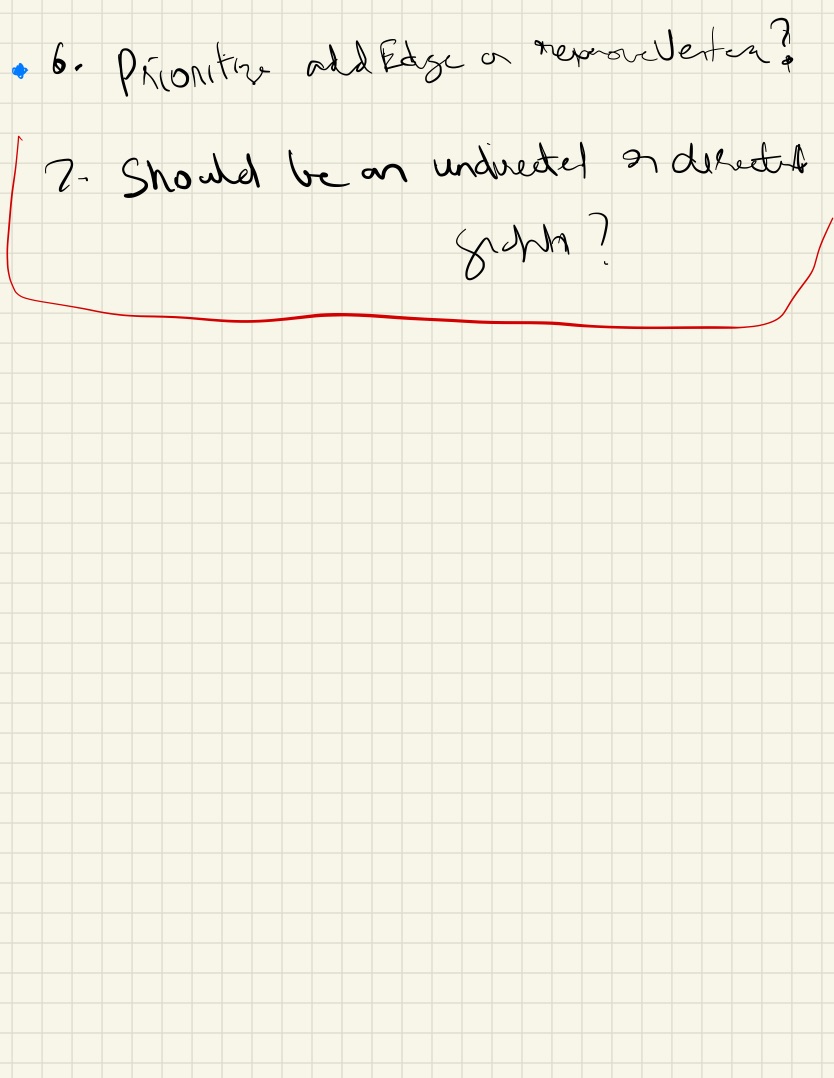 6. Prioritize addEdge or removeVertex?
7- Should be an undirected or directed
graph?